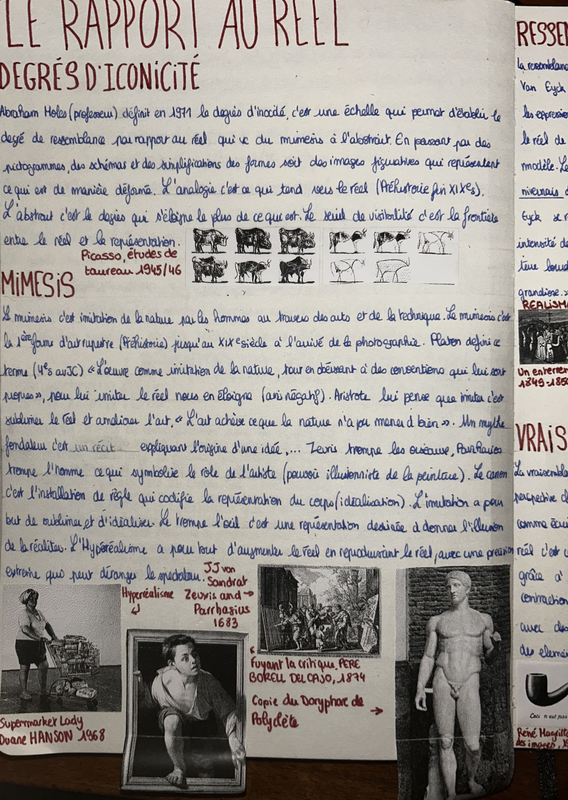 LE RAPPORT AU RÉEL
DEGRÉS D'ICONICITÉ
Abraham Moles (professeur) définit en 1971 le degrés d'iconicité, c'est une échelle qui permet d'établir le
degré de ressemblance par rapport au réel qui va du mimésis à l'abstrait. En passant par des
pictogrammes, des schémas et des simplifications des formes soit des images figuratives qui représentent
ce qui est de manière déformé. L'analogie c'est ce qui tend vers le réel (Préhistoire fin XIXes).
L'abstrait c'est le degrés qui s'éloigne le plus de ce qui est. Le seuil de visibilité c'est la frontière
entre le réel et la représentation.
Picasso, études de
taureau 1945/46
MIMESIS
Le mimésis c'est imitation de la nature par les hommes au travers des arts et de la technique. Le mimésis c'est
la 1ère forme d'art rupestre (Préhistoire) jusqu'au XIXe siècle à l'arrivé de la photographie. Platon défini ce
terme (4es avJC) « L'oeuvre comme imitation de la nature, tout en obéissant à des conventions qui lui sont
propres », pour lui imiter le réel nous en éloigne (avis négatif). Aristote lui pense que imiter c'est
sublimer le réel et améliorer l'art, « L'art achève ce que la nature n'a pu mener à bien ». Un mythe
fondateur c'est un récit expliquant l'origine d'une idée,... Zeuxis trompe les oiseaux, Parrhasios
trompe l'homme ce qui symbolise le rôle de l'artiste (pouvoir illusionniste de la peinture). Le canon
c'est l'installation de règle qui codifie la représentation du corps (idéalisation). L'imitation a pour
but de sublimer et d'idéaliser. Le trompe l'oeil c'est une représentation destinée à donner l'illusion
de la réalité. L'Hyperéalisme a pour but d'augmenter le réel en reproduisant le réel, avec une précision
extrême qui peut déranger le spectateur.
Hyperéalisme
J.J von
Sandrat
Zeuxis and →
Parrhasius
1683
Fuyant la critique, PERE
BORELL DEL CASO, 1874
Copie du Doryphore de →
Polyclète
Supermarker Lady
Duane HANSON 1968
RESSEM
La ressemblance
Van Eyck
les expression
le réel de
modèle. Le
Eyck se r
intensité de
grandiose. »
REALISM
Un enterrem
1849-1850
VRAIS
La vraisembla
perspective d
comme
réel c'est
grâce à
contraction
avec des
des élémen
Ceci n'est pas
René Magritte
des images,